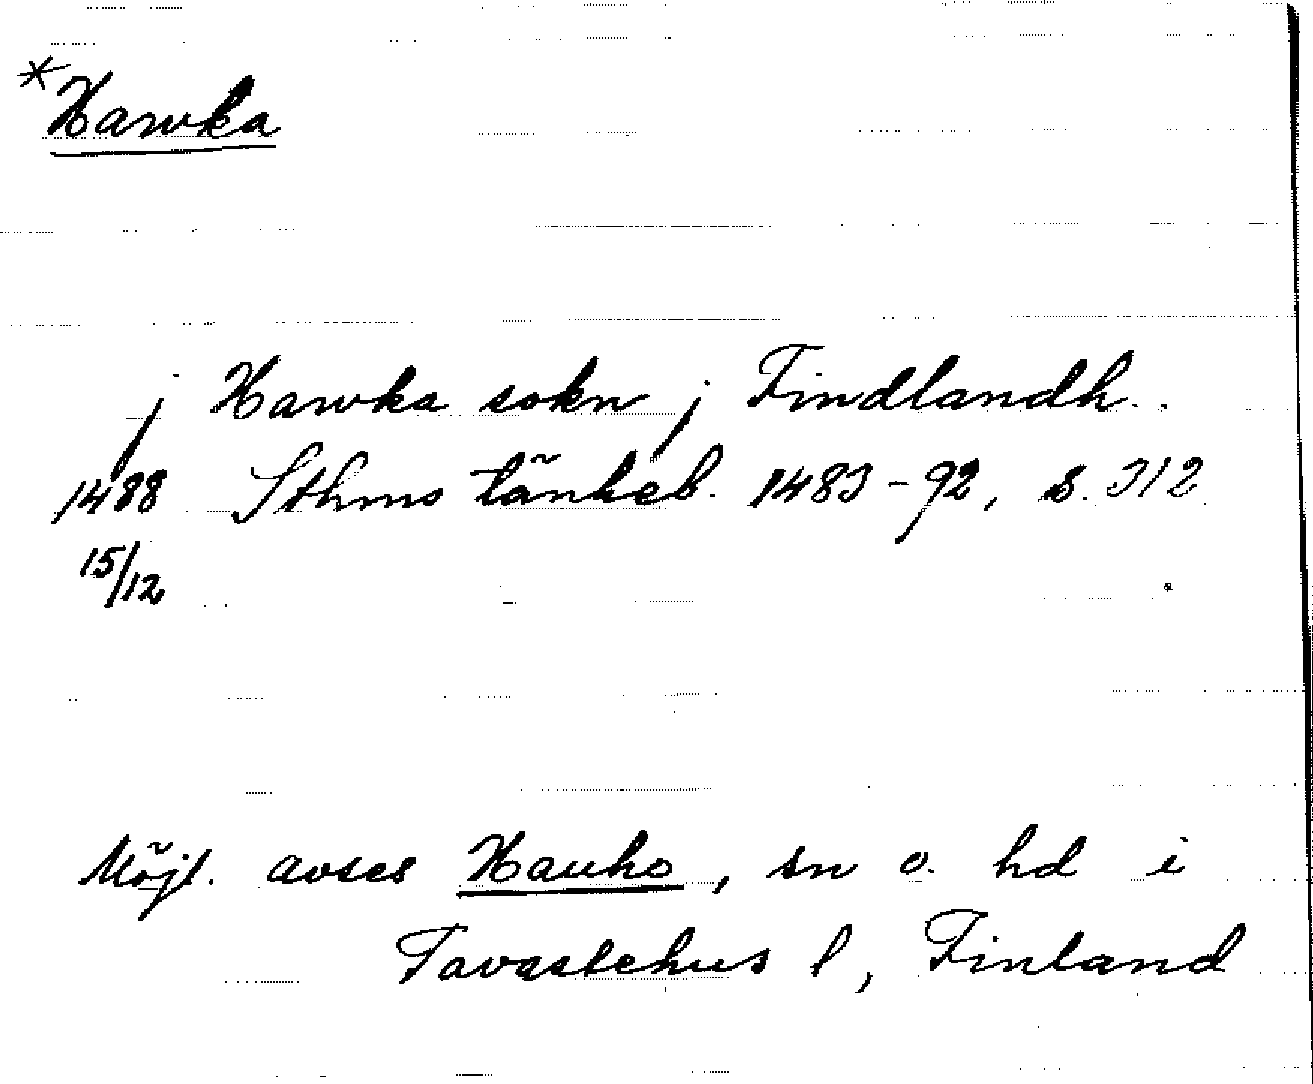 *Hawka
j Hawka sokn j Findlandh..
1488 Sthms tänkeb. 1483-92, s. 312
15/12
Möjl. avses Hauho, sn o. hd i
Tavastehus l, Finland